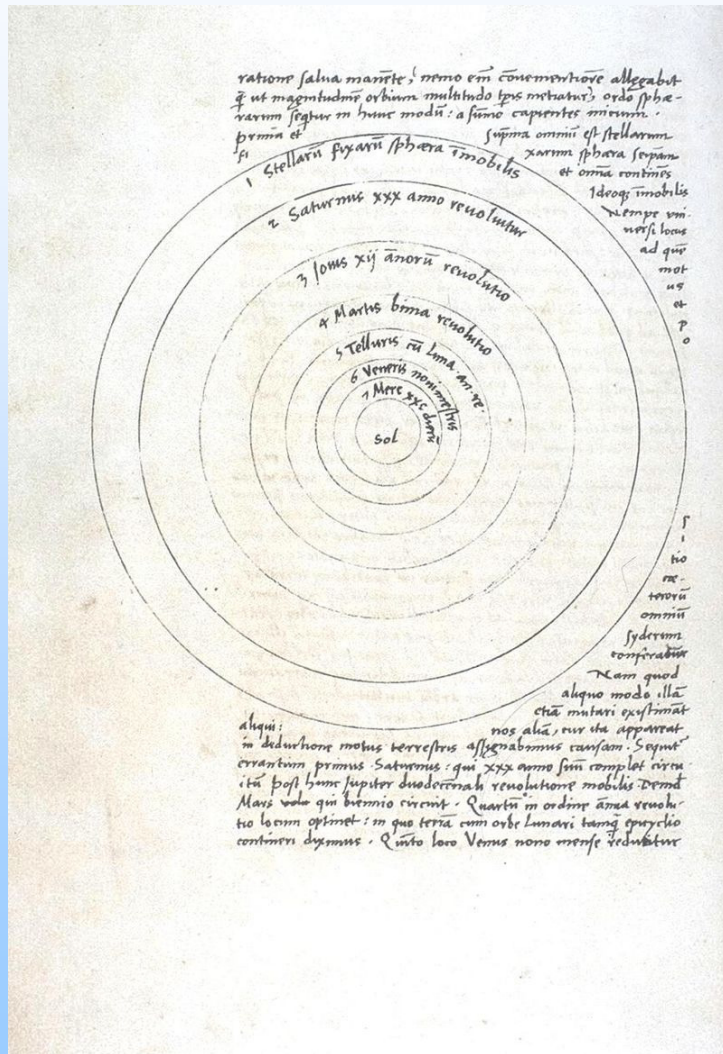 ratione salua manēte, nemo em̄ cōuenientiorē allegabit
q̄ ut magnitudinē orbium multitudo tp̄is metiatur, ordo sphæ-
rarum seq̄tur in hunc modū: a sūmo capientes inicium.
prima et sup̄ma omniū est stellarum
fi xarum sphæra seip̄am
et omīa continēs
Ideoq; īmobilis
Nempe vni-
uersi locus
ad quē
mot
us
et
p
o
1 Stellarū fixarū sphæra īmobilis
2 Saturnus xxx anno reuoluitur
3 Iouis xij ānorū reuolutio
4 Martis bima reuolutio
5 Telluris cū luna an. re.
6 Veneris nonimestris
7 Merc xxc dierū
Sol
s
i
tio
cæ-
terorū
omniū
syderum
conferatur
Nam quod
aliquo modo illā
etiā mutari existimāt
aliqui: nos aliā, cur ita appareat
in deductione motus terrestris assignabimus causam. Sequit᷑
errantium primus Saturnus: qui xxx anno suū complet circu-
itū post hunc Iupiter duodecēnali reuolutione mobilis Deinde
Mars qui biennio circuit. Quartū in ordine ānua reuolu-
tio locum optinet: in quo terrā cum orbe Lunari tamq̄ epicyclio
contineri diximus. Quīto loco Venus nono mense reducitur